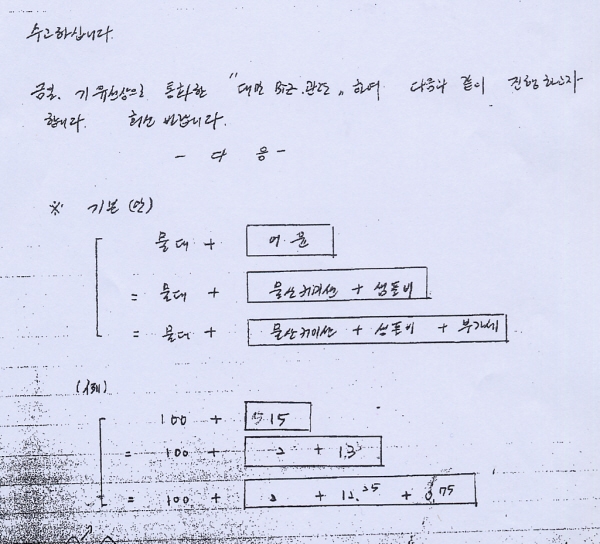 수고하십니다.
금일, 기 유선상으로 통화한 "대만 BIZ 관련" 하여 다음과 같이 진행하고자
합니다. 회신 바랍니다.
- 다 음 -
※ 기본 (안)
물대 + 어 윤
= 물대 + 물산커미션 + 샘플비
= 물대 + 물산커미션 + 샘플비 + 부가세
(예)
100 + 15
= 100 + 2 + 13
= 100 + 2 + 12.25 + 0.75